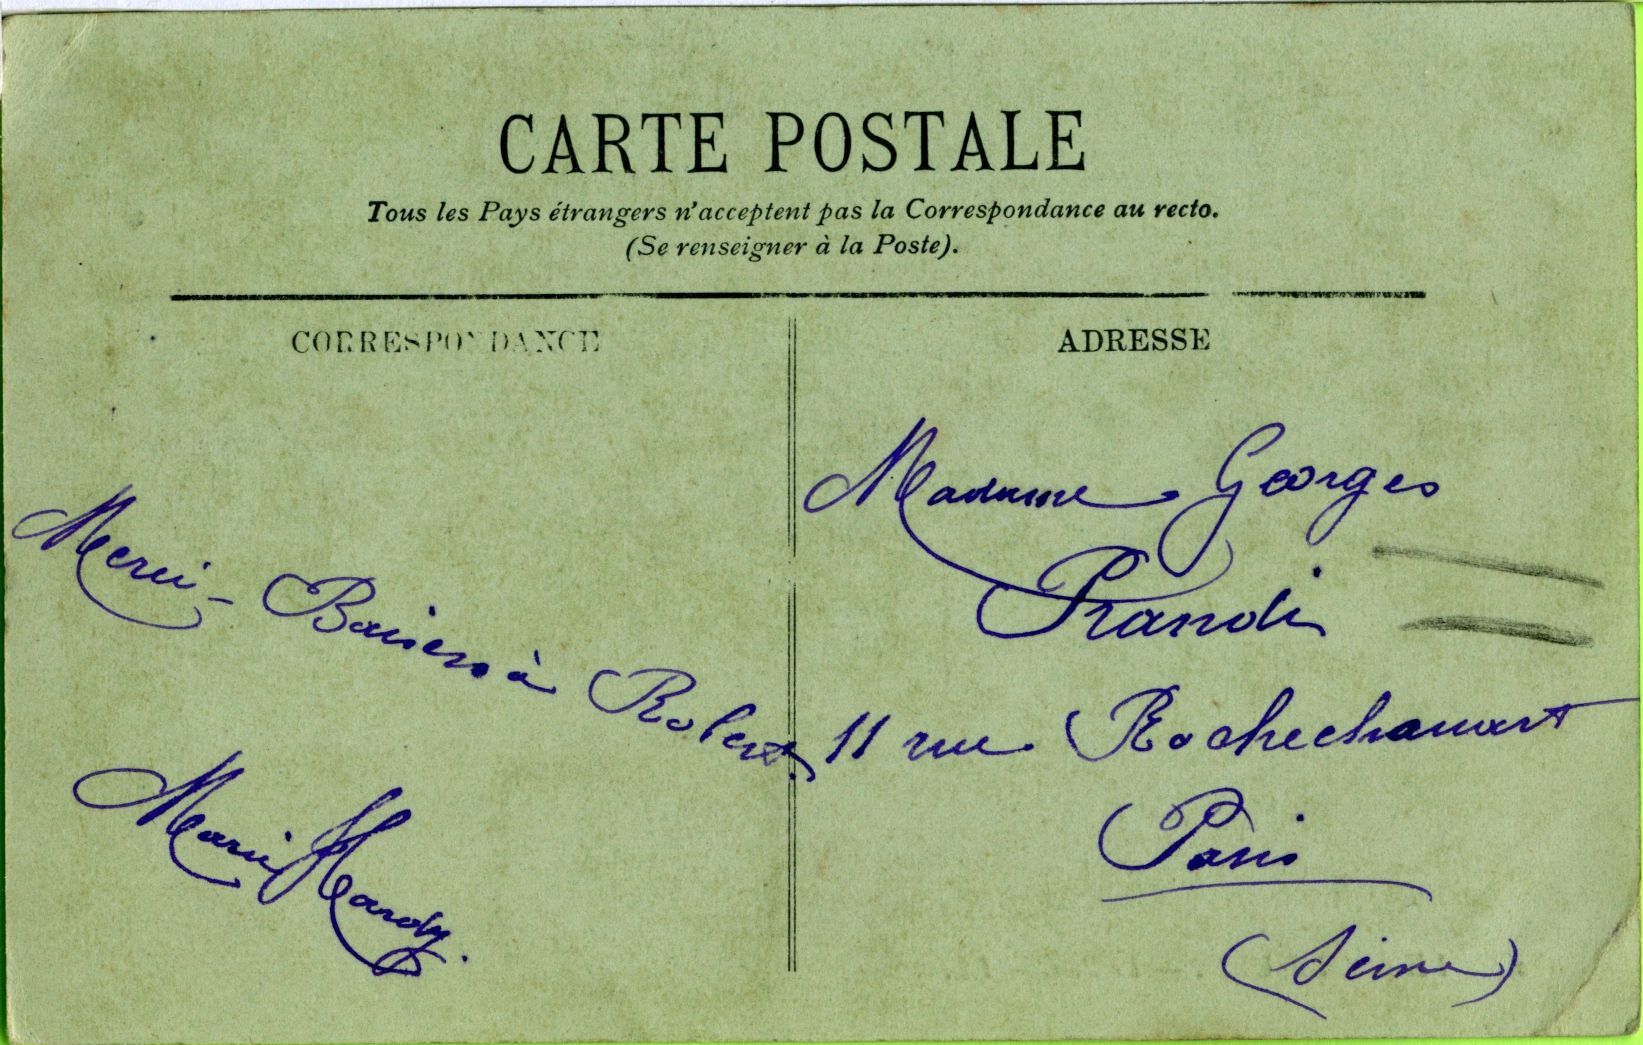 CARTE POSTALE
Tous les Pays étrangers n'acceptent pas la Correspondance au recto.
(Se renseigner à la Poste).
CORRESPONDANCE
Merci - Baisers à Robert.
Marie Hardy.
ADRESSE
Madame Georges
Prandi
11 rue Rochechouart
Paris
(Seine)